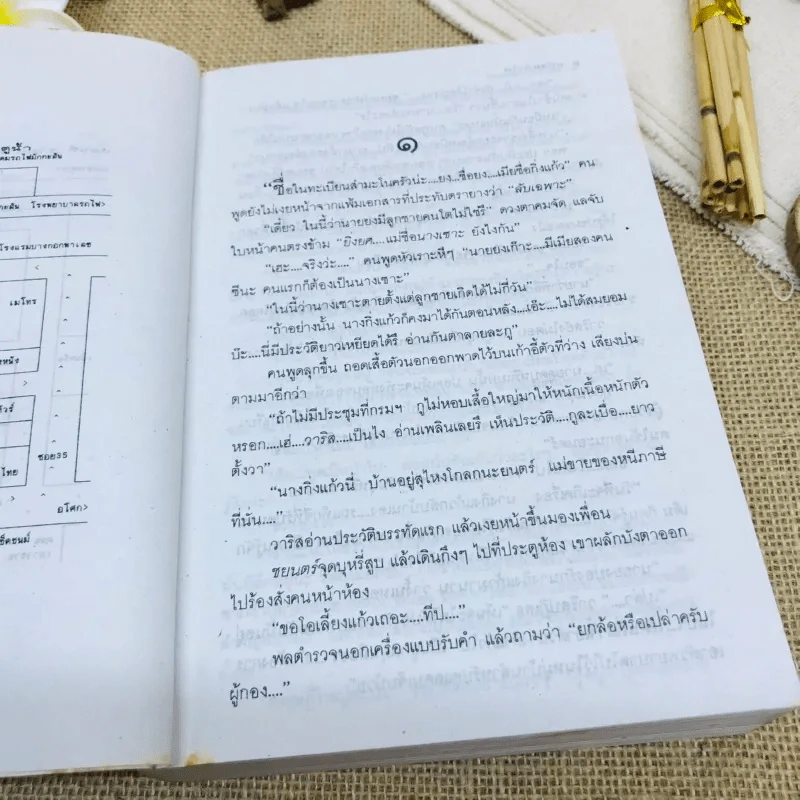 คมรถไฟมักกะสัน
โรงพยาบาลรถไฟ>
โรงแรมบางกอกพาเลซ
เมโทร
ซอย35
ไทย
อโศก>
๑
"ชื่อในทะเบียนสำมะโนครัวน่ะ....ยง...ชื่อยง....เมียชื่อกิ่งแก้ว" คน
พูดยังไม่เงยหน้าจากแฟ้มเอกสารที่ประทับตรายางว่า "ลับเฉพาะ"
"เดี๋ยว ในนี้ว่านายยงมีลูกชายคนโตไม่ใช่รึ" ดวงตาคมจัด แลจับ
ใบหน้าคนตรงข้าม "ยิ่งยศ....แม่ชื่อนางเซาะ ยังไงกัน"
"เฮะ....จริงว่ะ...." คนพูดหัวเราะหึๆ "นายยงเก๊าะ....มีเมียสองคน
ซีนะ คนแรกก็ต้องเป็นนางเซาะ"
"ในนี้ว่านางเซาะตายตั้งแต่ลูกชายเกิดได้ไม่กี่วัน"
"ถ้าอย่างนั้น นางกิ่งแก้วก็คงมาได้กันตอนหลัง....เอ๊ะ....ไม่ได้สมยอม
บ๊ะ....นี่มีประวัติยาวเหยียดได้รึ อ่านกันตาลายละกู"
คนพูดลุกขึ้น ถอดเสื้อตัวนอกออกพาดไว้บนเก้าอี้ตัวที่ว่าง เสียงบ่น
ตามมาอีกว่า
"ถ้าไม่มีประชุมที่กรมฯ กูไม่หอบเสื้อใหญ่มาให้หนักเนื้อหนักตัว
หรอก....เฮ่....วาริส....เป็นไง อ่านเพลินเลยรึ เห็นประวัติ....กูละเบื่อ....ยาว
ตั้งวา"
"นางกิ่งแก้วนี่ บ้านอยู่สุไหงโกลกนะยนตร์ แม่ขายของหนีภาษี
ที่นั่น...."
วาริสอ่านประวัติบรรทัดแรก แล้วเงยหน้าขึ้นมองเพื่อน
ชยนตร์จุดบุหรี่สูบ แล้วเดินกึงๆ ไปที่ประตูห้อง เขาผลักบังตาออก
ไปร้องสั่งคนหน้าห้อง
"ขอโอเลี้ยงแก้วเถอะ....ทีป...."
พลตำรวจนอกเครื่องแบบรับคำ แล้วถามว่า "ยกล้อหรือเปล่าครับ
ผู้กอง...."